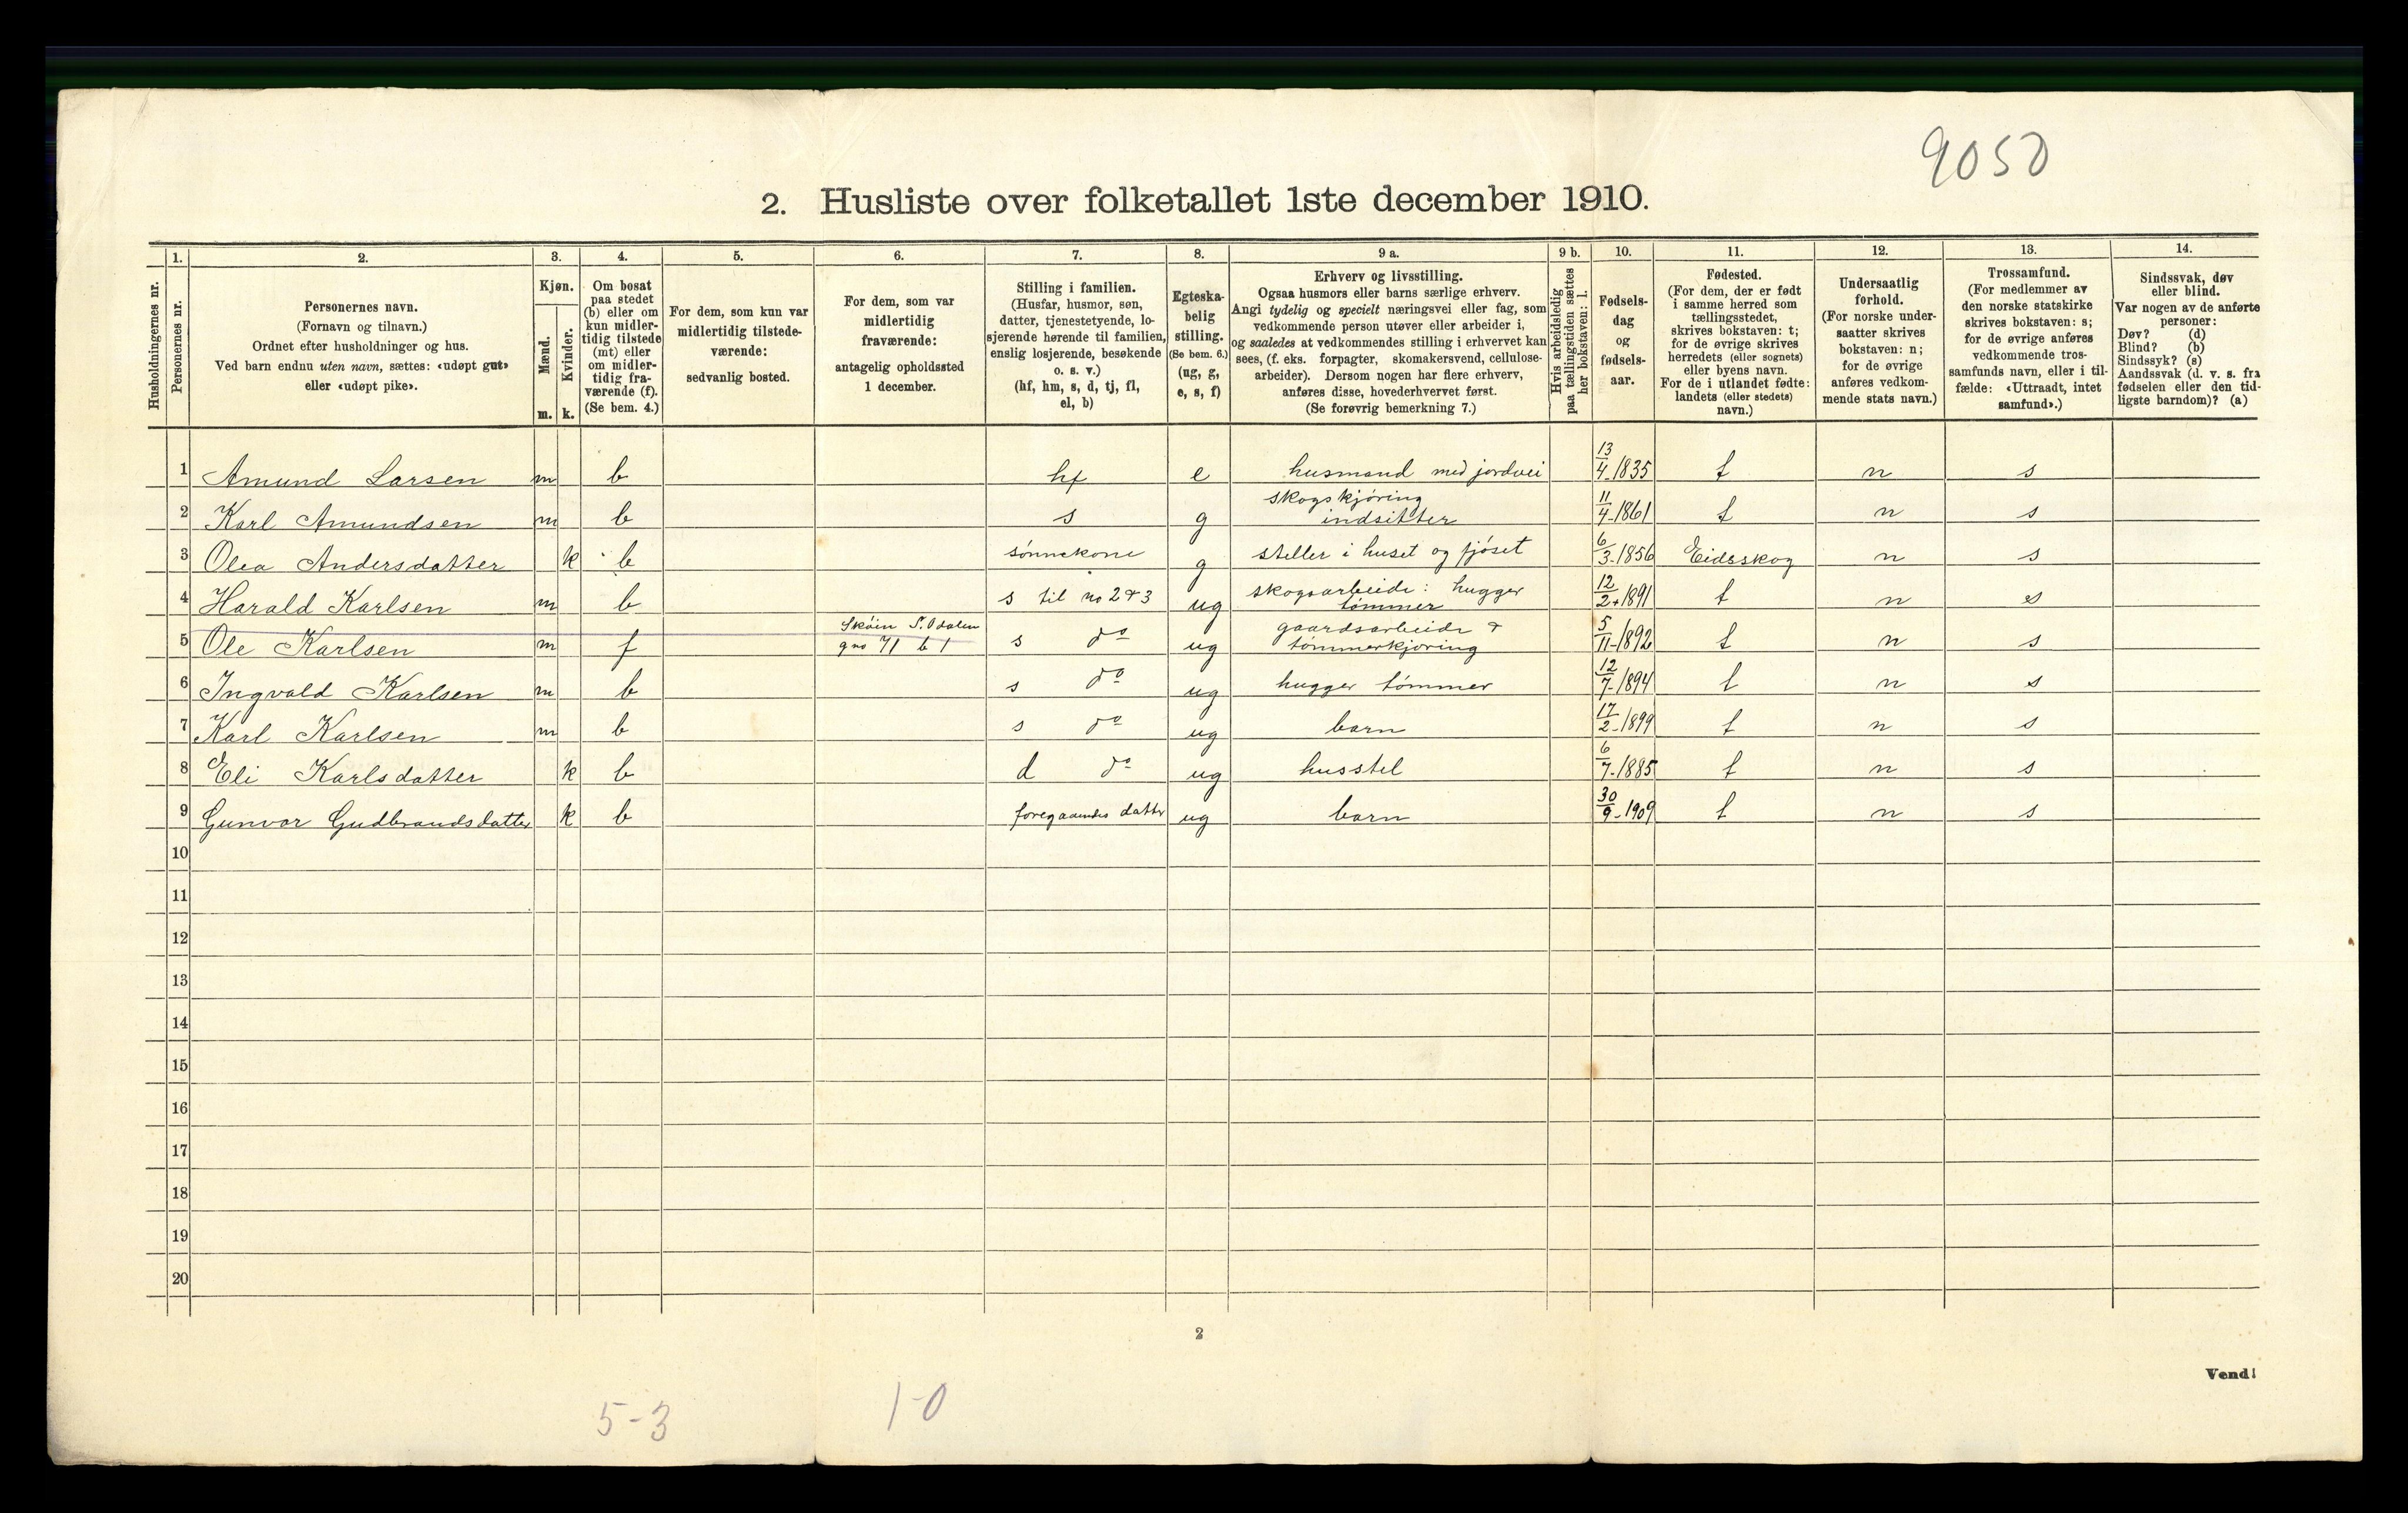 9050
2. Husliste over folketallet 1ste december 1910.
Husholdningernes nr.
1.
Personernes nr.
2.
Personernes navn.
(Fornavn og tilnavn.)
Ordnet efter husholdninger og hus.
Ved barn endnu uten navn, sættes: «udøpt gut»
eller «udøpt pike».
3.
Kjøn.
Mænd.
m.
Kvinder.
k.
4.
Om bosat
paa stedet
(b) eller om
kun midler-
tidig tilstede
(mt) eller
om midler-
tidig fra-
værende (f).
(Se bem. 4.)
5.
For dem, som kun var
midlertidig tilstede-
værende:
sedvanlig bosted.
6.
For dem, som var
midlertidig
fraværende:
antagelig opholdssted
1 december.
7.
Stilling i familien.
(Husfar, husmor, søn,
datter, tjenestetyende, lo-
sjerende hørende til familien,
enslig losjerende, besøkende
o. s. v.)
(hf, hm, s, d, tj, fl,
el, b)
8.
Egteska-
belig
stilling.
(Se bem. 6.)
(ug, g,
e, s, f)
9 a.
Erhverv og livsstilling.
Ogsaa husmors eller barns særlige erhverv.
Angi tydelig og specielt næringsvei eller fag, som
vedkommende person utøver eller arbeider i,
og saaledes at vedkommendes stilling i erhvervet kan
sees, (f. eks. forpagter, skomakersvend, cellulose-
arbeider). Dersom nogen har flere erhverv,
anføres disse, hovederhvervet først.
(Se forøvrig bemerkning 7.)
9 b.
Hvis arbeidsledig
paa tællingstiden sættes
her bokstaven: l.
10.
Fødsels-
dag
og
fødsels-
aar.
11.
Fødested.
(For dem, der er født
i samme herred som
tællingsstedet,
skrives bokstaven: t;
for de øvrige skrives
herredets (eller sognets)
eller byens navn.
For de i utlandet fødte:
landets (eller stedets)
navn.)
12.
Undersaatlig
forhold.
(For norske under-
saatter skrives
bokstaven: n;
for de øvrige
anføres vedkom-
mende stats navn.)
13.
Trossamfund.
(For medlemmer av
den norske statskirke
skrives bokstaven: s;
for de øvrige anføres
vedkommende tros-
samfunds navn, eller i til-
fælde: «Uttraadt, intet
samfund».)
14.
Sindssvak, døv
eller blind.
Var nogen av de anførte
personer:
Døv? (d)
Blind? (b)
Sindssyk? (s)
Aandssvak (d. v. s. fra
fødselen eller den tid-
ligste barndom)? (a)
1 Amund Larsen m b hf e husmand med jordvei 13/4-1835 t n s
2 Karl Amundsen m b s g skogskjøring indsitter 11/4-1861 t n s
3 Olea Andersdatter k b sønnekone g steller i huset og fjøset 6/3-1856 Eidsskog n s
4 Harald Karlsen m b s til no 2 & 3 ug skogsarbeide: hugger tømmer 12/2-1891 t n s
5 Ole Karlsen m f Skøin S. Odalen gno 71 b 1 s do ug gaardsarbeide & tømmerkjøring 5/11-1892 t n s
6 Ingvald Karlsen m b s do ug hugger tømmer 12/7-1894 t n s
7 Karl Karlsen m b s do ug barn 17/2-1899 t n s
8 Eli Karlsdatter k b d do ug husstel 6/7-1885 t n s
9 Gunvor Gudbrandsdatter k b foregaaendes datter ug barn 30/9-1909 t n s
10
11
12
13
14
15
16
17
18
19
20
2
Vend!
5-3
1-0